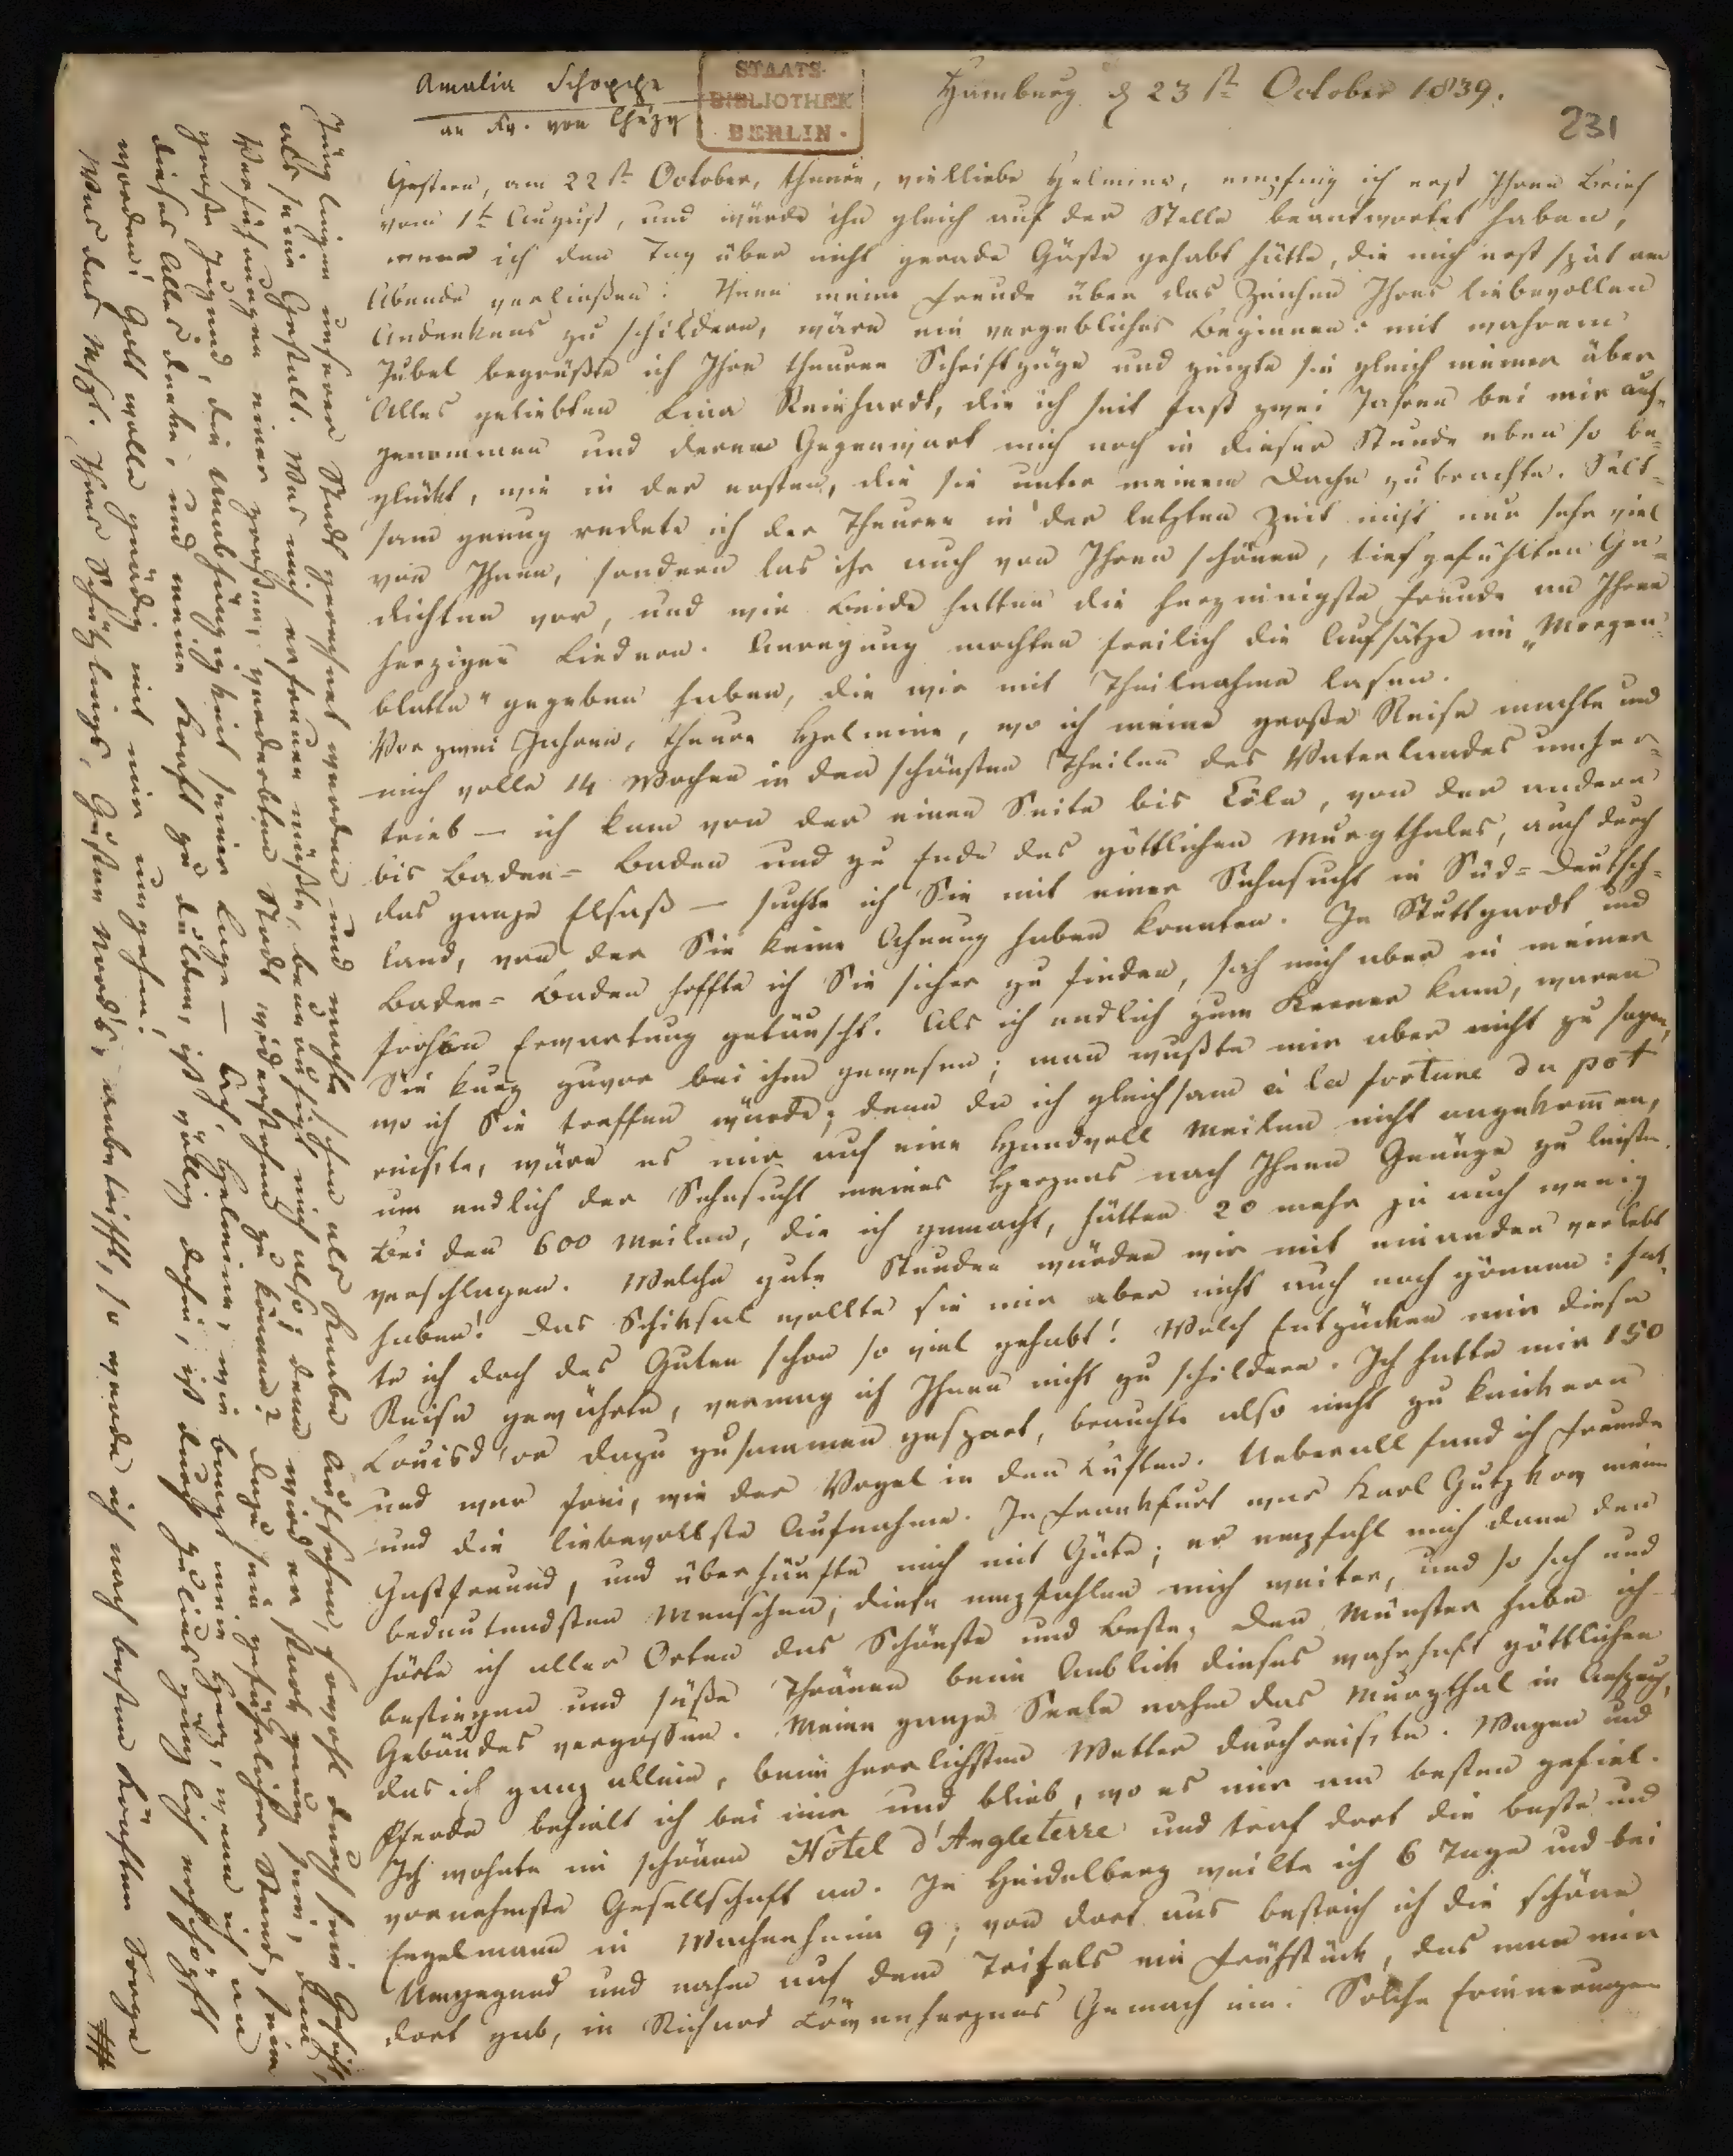 Amalia Schoppe
an Fr. von Chézy
STAATS-
BIBLIOTHEK
BERLIN.
Hamburg d 23st October 1839.
231
Gestern, am 22st October, theure, vielliebe Helmina, empfing ich erst Ihren Brief
vom 1t August, und würde ihn gleich auf der Stelle beantwortet haben,
wenn ich den Tag über nicht gerade Gäste gehabt hätte, die mich erst spät am
Abende verließen. Ihnen meine Freude über das Zeichen Ihres liebevollen
Andenkens zu schildern, wäre ein vergebliches Beginnen: mit wahrem
Jubel begrüßte ich Ihre theuren Schriftzüge und zeigte sie gleich meiner über
Alles geliebten Lina Reinhardt, die ich seit fast zwei Jahren bei mir auf-
genommen und deren Gegenwart mich noch in dieser Stunde eben so be-
glückt, wie in der ersten, die sie unter meinem Dache zubrachte. Selt-
sam genug redete ich der Theuren in der letzten Zeit nicht nur sehr viel
von Ihnen, sondern las ihr auch von Ihren schönen, tiefgefühlten Ge-
dichten vor, und wir Beide hatten die herzinnigste Freude an Ihren
herzigen Liedern. Anregung mochten freilich die Aufsätze im „Morgen-
blatte" gegeben haben, die wir mit Theilnahme lasen.
Vor zwei Jahren, theure Helmina, wo ich meine große Reise machte und
mich volle 14 Wochen in den schönsten Theilen des Vaterlandes umher-
trieb — ich kam von der einen Seite bis Cöln, von der andern
bis Baden-Baden und zu Ende des göttlichen Murgthales, auch durch
das ganze Elsaß — suchte ich Sie mit einer Sehnsucht in Süd-Deutsch-
land, von der Sie keine Ahnung haben konnten. In Stuttgardt und
Baden-Baden hoffte ich Sie sicher zu finden, sah mich aber in meiner
frohen Erwartung getäuscht. Als ich endlich zum Kerner kam, waren
Sie kurz zuvor bei ihm gewesen; man wußte mir aber nicht zu sagen,
wo ich Sie treffen würde; denn da ich gleichsam à la fortune du pot
reis'te, wäre es mir auf eine Handvoll Meilen nicht angekommen,
um endlich der Sehnsucht meines Herzens nach Ihnen Genüge zu leisten.
Bei den 600 Meilen, die ich gemacht, hätten 20 mehr ja auch wenig
verschlagen. Welche gute Stunden würden wir mit einander verlebt
haben! Das Schiksal wollte sie mir aber nicht auch noch gönnen: hat-
te ich doch des Guten schon so viel gehabt! Welch Entzücken mir diese
Reise gewährte, vermag ich Ihnen nicht zu schildern. Ich hatte mir 150
Louisd'or dazu zusammen gespart, brauchte also nicht zu knickern
und war frei, wie der Vogel in den Lüften. Ueberall fand ich Freunde
und die liebevollste Aufnahme. In Frankfurt war Karl Gutzkow mein
Gastfreund, und überhäufte mich mit Güte; er empfahl mich dann den
bedeutendsten Menschen; diese empfahlen mich weiter, und so sah und
hörte ich aller Orten das Schönste und Beste. Den Münster habe ich
bestiegen und süße Thränen beim Anblick dieses wahrhaft göttlichen
Gebäudes vergossen. Meine ganze Seele nahm das Murgthal in Anspruch,
das ich ganz allein, beim herrlichsten Wetter durchreis'te. Wagen und
Pferde behielt ich bei mir und blieb, wo es mir am besten gefiel.
Ich wohnte im schönen Hôtel d'Angleterre und traf dort die beste und
vornehmste Gesellschaft an. In Heidelberg weilte ich 6 Tage und bei
Engelmann in Wachenheim 9; von dort aus bestrich ich die schöne
Umgegend und nahm auf dem Trifels ein Frühstück, das man mir
dort gab, in Richard Löwenherzens Gemach ein. Solche Erinnerungen
Jünglingen unserer Stadt gerechnet werden und machte schon als Knabe Aufsehen, sowohl durch sein Gesicht,
als seine Gestalt. Was mich erfreuen müßte, beunruhigt mich also; denn wird er stark genug sein, den
Verführungen einer großen, verderbten Stadt widerstehen zu können? Dazu sein gefährlicher Stand, seine
große Jugend, die Unabhängigkeit seiner Lage — Ach, Helmina, wie bangt mein Herz, wenn ich an
dieses Alles denke, und meine Kraft zu dulden, ist völlig dahin, ist durch Julius gänzlich erschöpft
worden! Gott wolle gnädig mit mir umgehen!
Was das Mspt. Ihres Schützlings, Gustav Mord's, anbetrifft, so werde ich nach besten Kräften Sorge